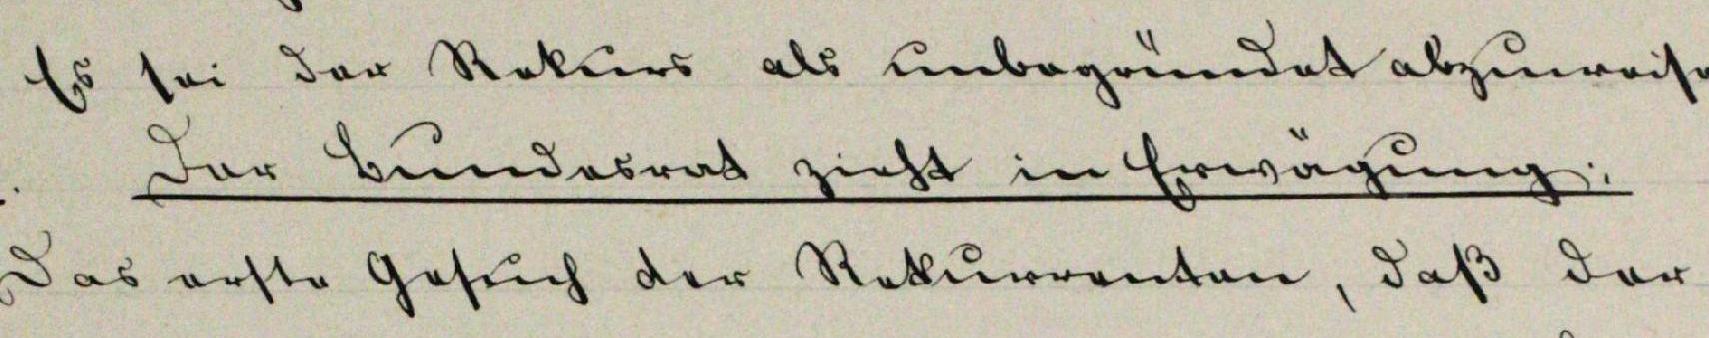 Es sei der Rekurs als unbegründet abzuweise
Der Bundesrat zieht in Erwägung:
Das erste Gesuch der Rekurrenten, daß der